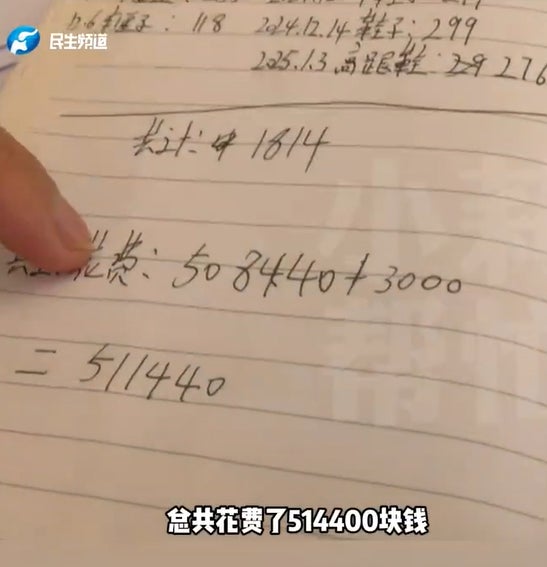 民生频道
118 2024.12.14 鞋子: 299
2025.1.3 高跟鞋: 276
共计: 1814
花费: 508440+3000
= 511440
小帮忙
总共花费了514400块钱